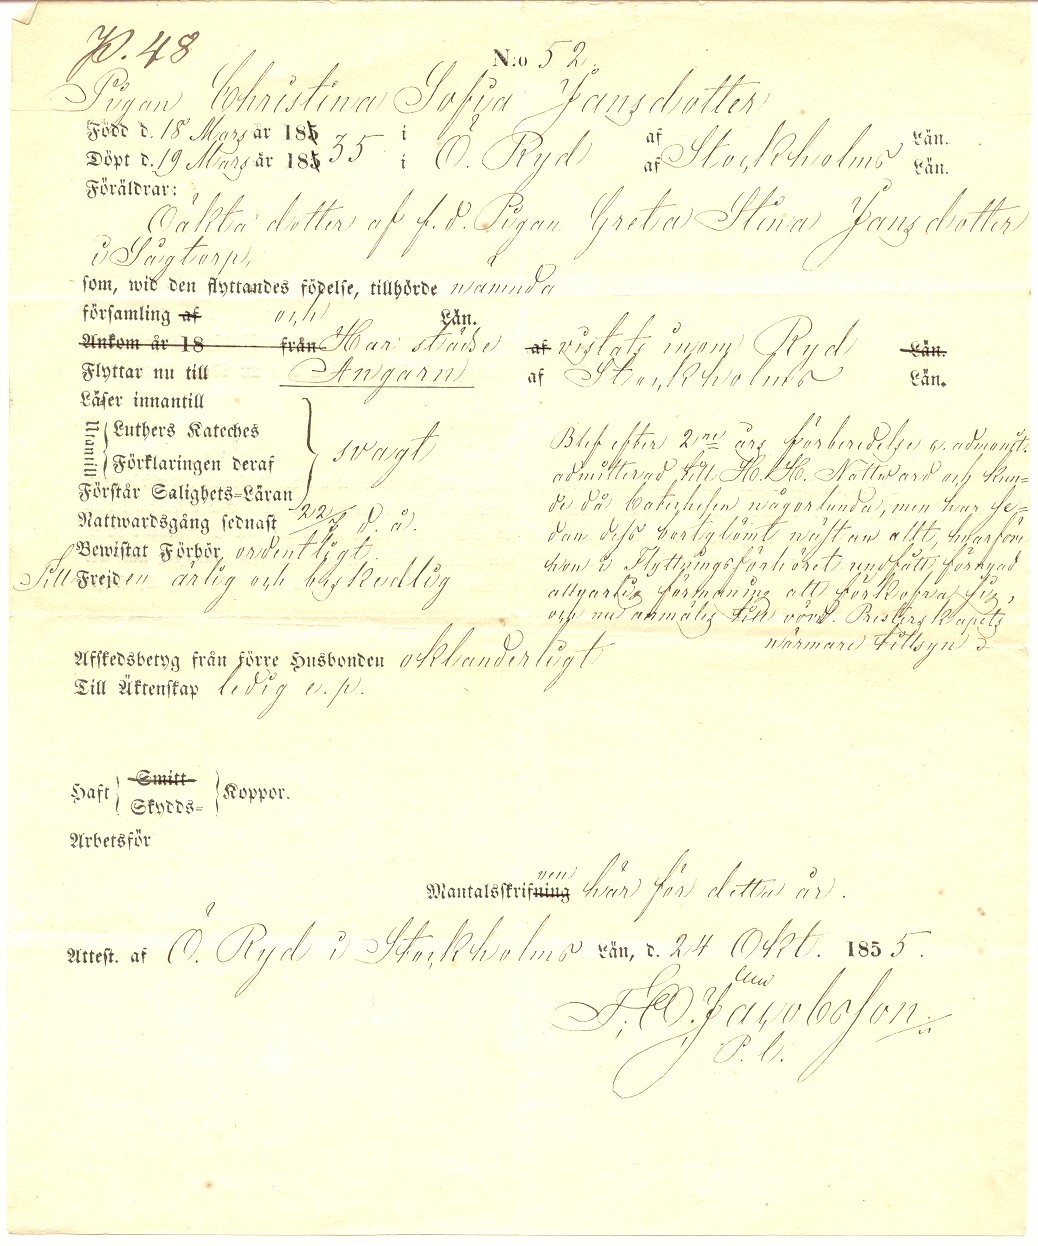 P. 48
N:o 52.
Pigan Christina Sofia Jansdotter
Född d. 18 Mars år 185 i af Län.
Döpt d. 19 Mars år 185 35 i Ö. Ryd af Stockholms Län.
Föräldrar:
Oäkta dotter af f. d. Pigan Greta Stina Jansdotter
i Sågtorp,
som, wid den flyttandes födelse, tillhörde nämnda
församling af och Län.
Ankom år 18 från Har städse af vistats inom Ryd Län.
Flyttar nu till Angarn af Stockholms Län.
Läser innantill
Utantill Luthers Kateches
Förklaringen deraf svagt
Förstår Salighets-Läran
Nattwardsgång sednast 22/7 d. å.
Bewistat Förhör ordentligt
Till Frejden ärlig och beskedlig
Blef efter 2ne års förberedelse o. admonit.
admitterad till H. H. Nattvard och kun-
de då Catechesen någorlunda, men har se-
dan dess bortglömt nästan allt, hvarföre
hon i Flyttningsförhöret undfått förnyad
allvarlig förmaning att förkofra sig,
och nu anmäles till vörd. Presterskapets
närmare tillsyn
Afskedsbetyg från förre Husbonden oklanderligt
Till Äktenskap ledig e. p.
Haft Smitt-
Skydds- Koppor.
Arbetsför
Mantalsskrifning ven här för detta år.
Attest. af Ö. Ryd i Stockholms Län, d. 24 Okt. 1855.
Jacobsson
P. l.